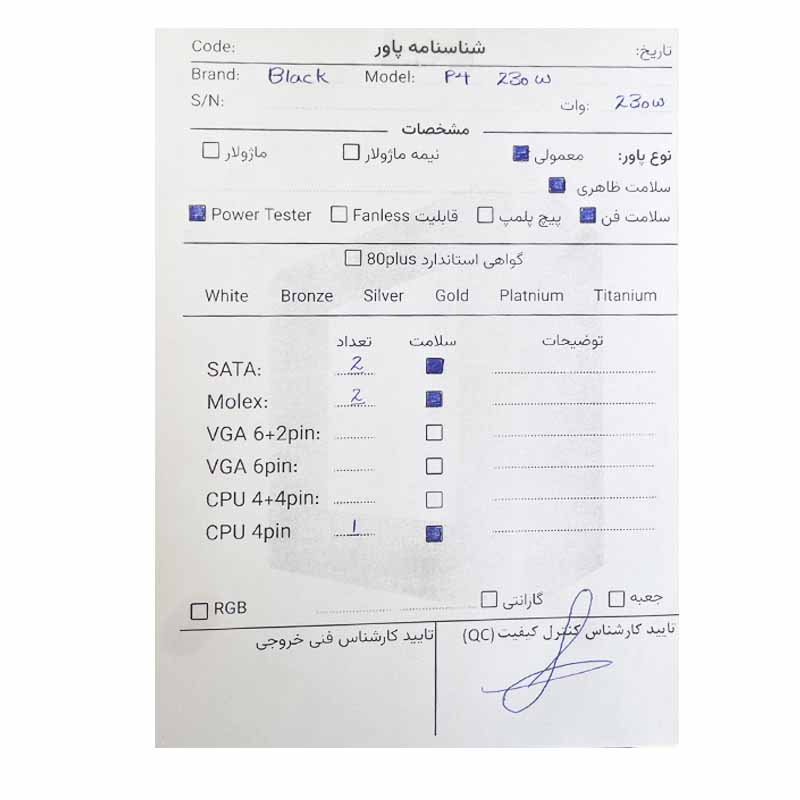 Code: شناسنامه پاور تاریخ:
Brand: Black Model: P4 230W
S/N: وات: 230W
مشخصات
نوع پاور: معمولی نیمه ماژولار ماژولار
سلامت ظاهری
سلامت فن پیچ پلمپ قابلیت Fanless Power Tester
گواهی استاندارد 80plus
White Bronze Silver Gold Platnium Titanium
تعداد سلامت توضیحات
SATA: 2
Molex: 2
VGA 6+2pin:
VGA 6pin:
CPU 4+4pin:
CPU 4pin 1
RGB گارانتی جعبه
تایید کارشناس کنترل کیفیت (QC) تایید کارشناس فنی خروجی